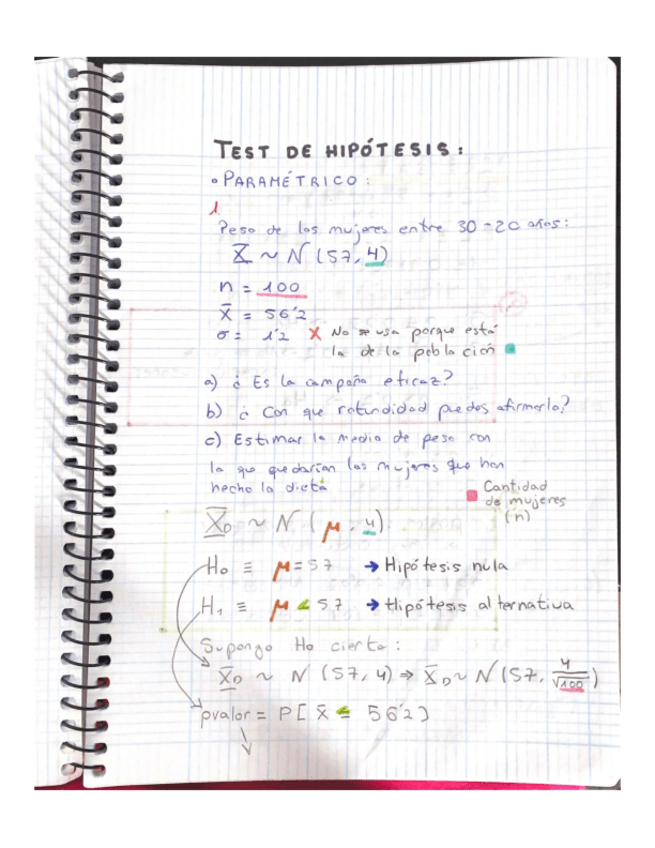 TEST DE HIPÓTESIS:
• PARAMÉTRICO:
1
Peso de las mujeres entre 30-20 años:
X ~ N (57, 4)
n = 100
x̄ = 56'2
σ = 1'2 X No se usa porque está
la de la población
a) ¿ Es la campaña eficaz?
b) ¿ Con que rotundidad puedes afirmarlo?
c) Estimar la media de peso con
la que quedarían las mujeres que han
hecho la dieta
Cantidad
de mujeres
(n)
X̄D ~ N ( μ , 4)
H0 ≡ μ = 57 → Hipótesis nula
H1 ≡ μ < 57 → Hipótesis alternativa
Supongo H0 cierta:
X̄D ~ N (57, 4) ⇒ X̄D ~ N (57, 4/√100)
pvalor = P[ x̄ ≤ 56'2]